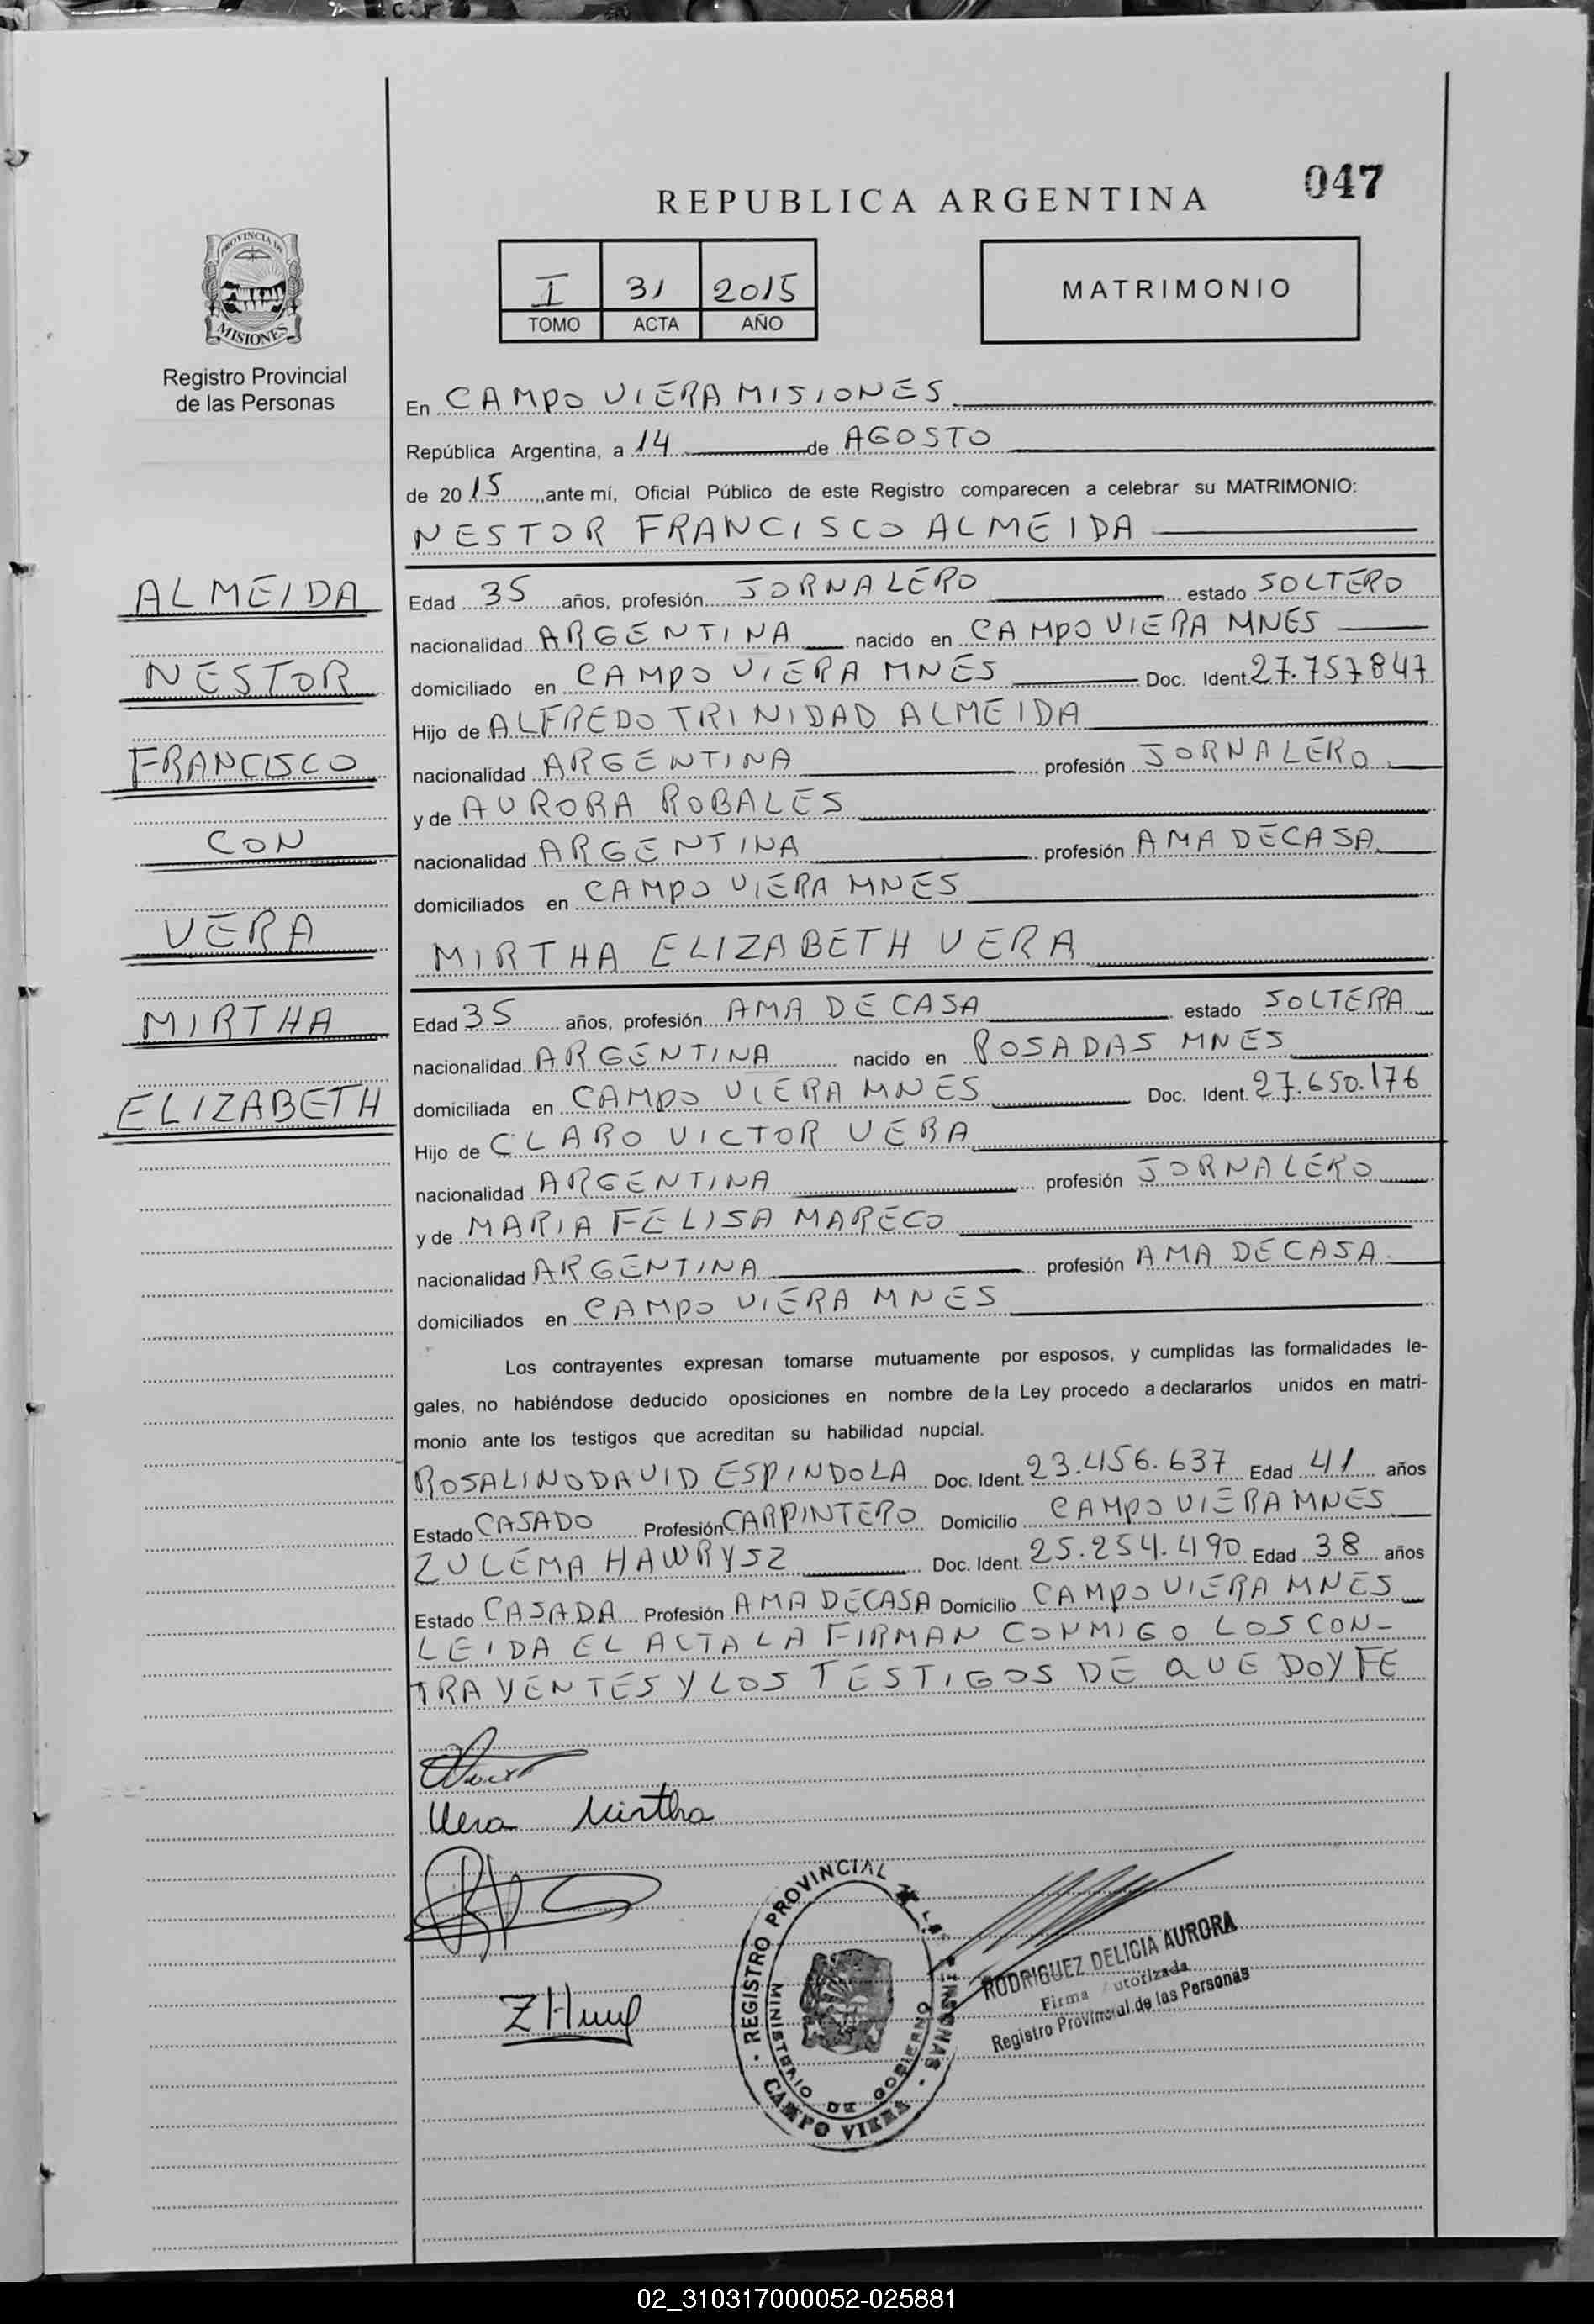 047
REPUBLICA ARGENTINA
PROVINCIA DE
MISIONES
Registro Provincial
de las Personas
I 31 2015
TOMO ACTA AÑO
MATRIMONIO
En CAMPO VIERA MISIONES
República Argentina, a 14 de AGOSTO
de 2015, ante mí, Oficial Público de este Registro comparecen a celebrar su MATRIMONIO:
NESTOR FRANCISCO ALMEIDA
ALMEIDA
NESTOR
FRANCISCO
CON
VERA
MIRTHA
ELIZABETH
Edad 35 años, profesión JORNALERO estado SOLTERO
nacionalidad ARGENTINA nacido en CAMPO VIERA MNES
domiciliado en CAMPO VIERA MNES Doc. Ident. 27.757847
Hijo de ALFREDO TRINIDAD ALMEIDA
nacionalidad ARGENTINA profesión JORNALERO
y de AURORA ROBALES
nacionalidad ARGENTINA profesión AMA DE CASA
domiciliados en CAMPO VIERA MNES
MIRTHA ELIZABETH VERA
Edad 35 años, profesión AMA DE CASA estado SOLTERA
nacionalidad ARGENTINA nacido en POSADAS MNES
domiciliada en CAMPO VIERA MNES Doc. Ident. 27.650.176
Hijo de CLARO VICTOR VERA
nacionalidad ARGENTINA profesión JORNALERO
y de MARIA FELISA MARECO
nacionalidad ARGENTINA profesión AMA DE CASA
domiciliados en CAMPO VIERA MNES
Los contrayentes expresan tomarse mutuamente por esposos, y cumplidas las formalidades le-
gales, no habiéndose deducido oposiciones en nombre de la Ley procedo a declararlos unidos en matri-
monio ante los testigos que acreditan su habilidad nupcial.
ROSALINO DAVID ESPINDOLA Doc. Ident. 23.456.637 Edad 41 años
Estado CASADO Profesión CARPINTERO Domicilio CAMPO VIERA MNES
ZULEMA HAWRYSZ Doc. Ident. 25.254.490 Edad 38 años
Estado CASADA Profesión AMA DE CASA Domicilio CAMPO VIERA MNES
LEIDA EL ACTA LA FIRMAN CONMIGO LOS CON-
TRAYENTES Y LOS TESTIGOS DE QUE DOY FE
Vera Mirtha
REGISTRO PROVINCIAL DE LAS PERSONAS
MINISTERIO DE GOBIERNO
CAMPO VIERA
RODRIGUEZ DELICIA AURORA
Firma Autorizada
Registro Provincial de las Personas
02_310317000052-025881